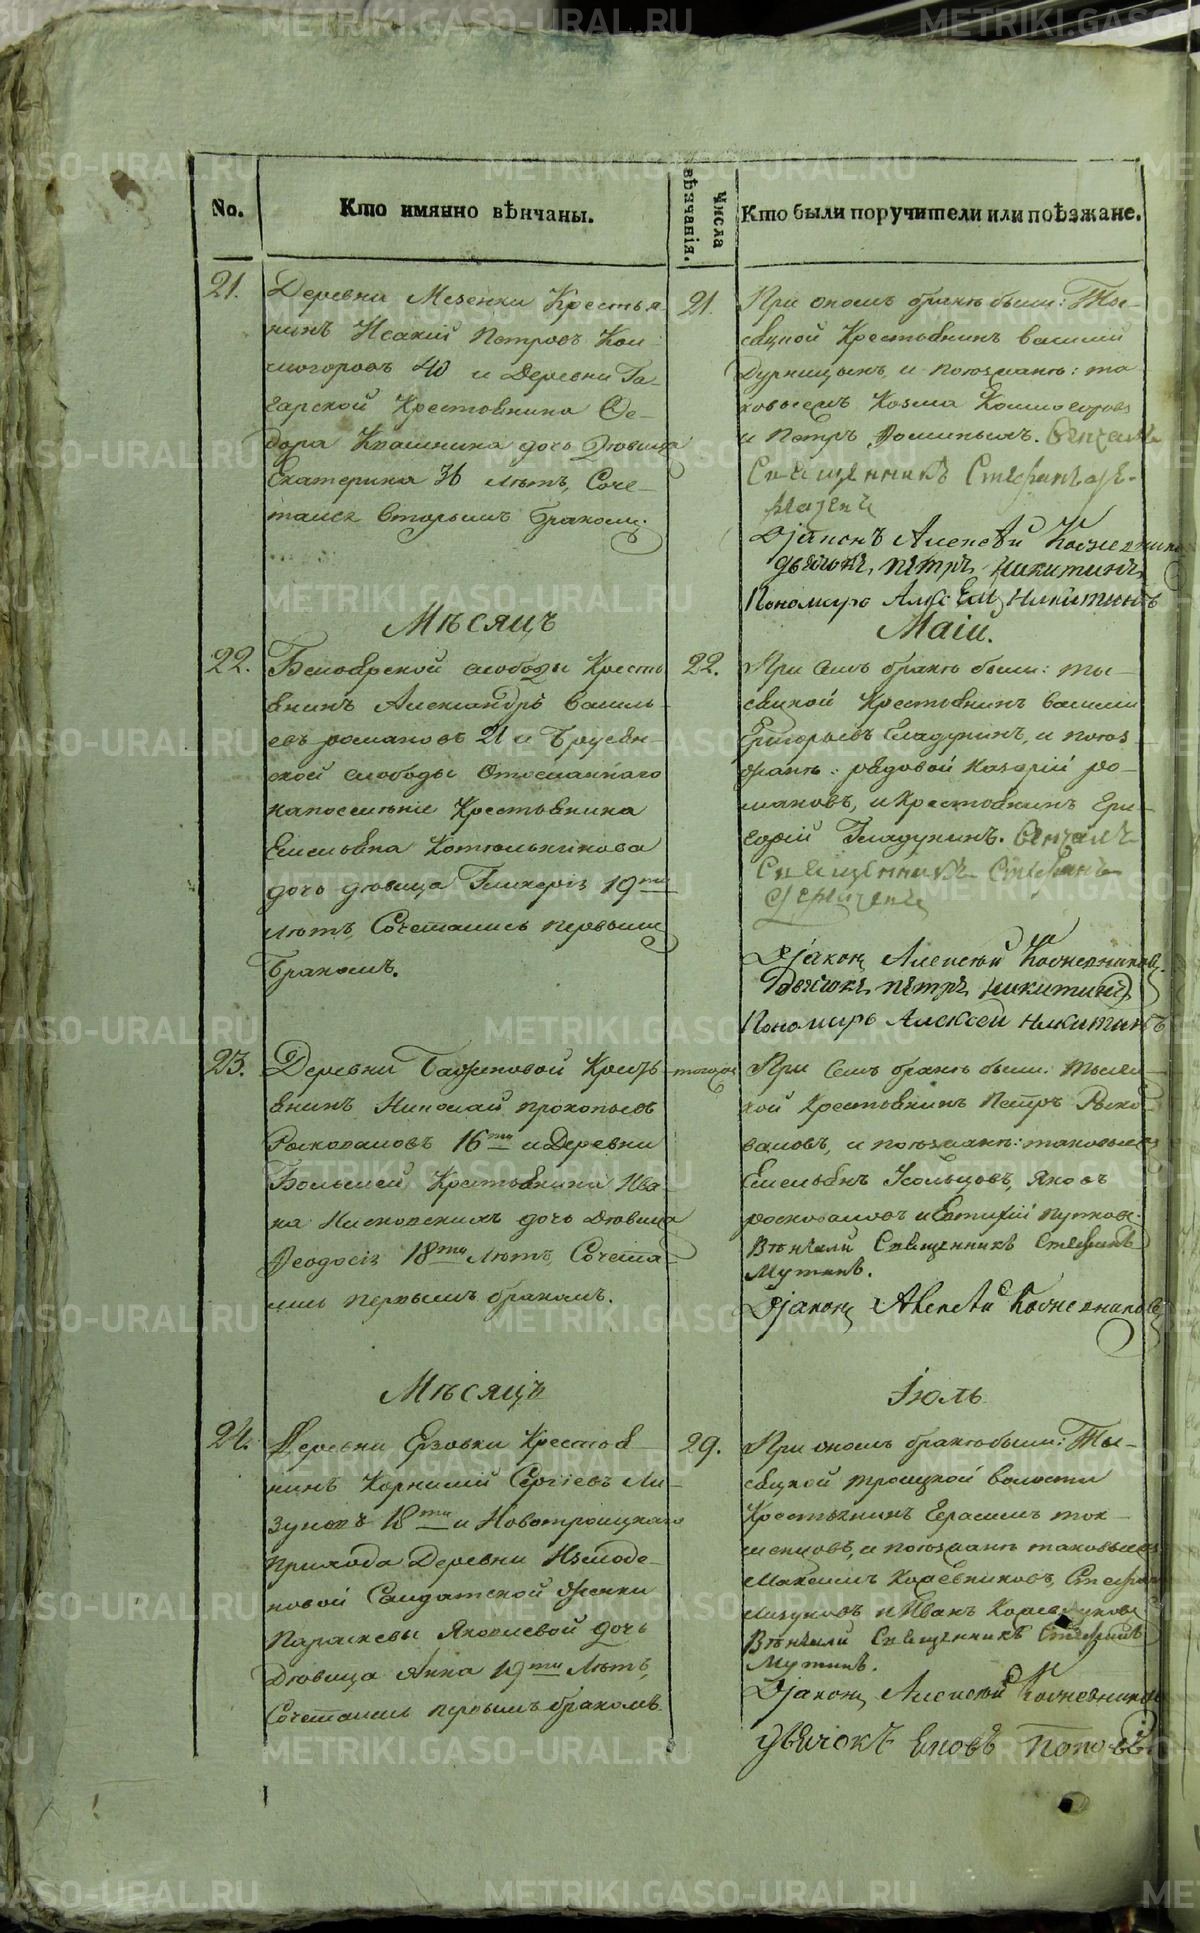 No.
Кто имянно вѣнчаны.
Числа вѣнчанія.
Кто были поручители или поѣзжане.
21.
Деревни Мезенки Крестья-
нинъ Исакій Петровъ Кол-
могоровъ 40 и Деревни Га-
гарской Крестьянина Ѳе-
дора Квашнина дочь Дѣвица
Екатерина 36 лѣтъ, Соче-
тался вторымъ бракомъ.
21.
При ономъ бракѣ были: Ты-
сяцкой Крестьянинъ Василий
Дурницынъ и поѣзжанѣ: та-
ковыеже Козма Колмогоровъ
и Петръ Фоминыхъ. Вѣнчалъ
Священникъ Стефанъ
Дjаконъ Алексѣй Кожевниковъ
дьячокъ Пѣтръ Никитинъ
Пономарь Алексей Никитинъ
Мѣсяцъ
Маій.
22.
Белоярской слободы Кресть-
янинъ Александръ Василь-
евъ Романовъ 21 и Брусян-
ской слободы Отосланнаго
на поселѣніе Крестьянина
Емельяна Котельникова
дочь дѣвица Гликерія 19ти
лѣтъ, Сочетались первымъ
бракомъ.
22.
При семъ бракѣ были: ты-
сяцкой Крестьянинъ Василий
Григорьевъ Гладунинъ, и поѣз-
жанѣ: рядовой Назарій Ро-
мановъ, и Крестьянинъ Гри-
горій Гладунинъ. Вѣнчалъ
Священникъ Стефанъ
Дjаконъ Алексѣй Кожевниковъ.
Дьячокъ Пѣтръ Никитинъ
Пономарь Алексей Никитинъ
23.
Деревни Баженовой Кресть-
янинъ Николай Прокопьевъ
Росковаловъ 16ти и Деревни
Большей Крестьянина Ива-
на дочь Дѣвица
Ѳеодосія 18ти лѣтъ, Сочета-
лись первымъ бракомъ.
тогоже
При Семъ бракѣ были: Тысяц-
кой Крестьянинъ Петръ Роско-
валовъ, и поѣзжанѣ: таковыеже
Емельянъ Усольцовъ, Яковъ
Росковаловъ и Евтифій
Вѣнчали Священникъ Стефанъ
Мутинъ.
Дjаконъ Алексѣй Кожевниковъ
Мѣсяцъ
Іюль
24.
Деревни Ерзовки Крестья-
нинъ Корнилій Сергіевъ Ли-
зуновъ 18ти и Новотроицкаго
прихода Деревни Измоде-
новой Салдатской женки
Параскевы Яковлевой дочь
Дѣвица Анна 19ти лѣтъ,
Сочетались первымъ бракомъ
29.
При ономъ бракѣ были: Ты-
сяцкой Троицкой волости
Крестьянинъ Герасимъ Ток-
и поѣзжанѣ таковыеже
Максимъ Стефанъ
Лизуновъ и Иванъ
Вѣнчали Священникъ Стефанъ
Мутинъ.
Дjаконъ Алексѣй Кожевниковъ
дьячокъ Яковъ Поповъ